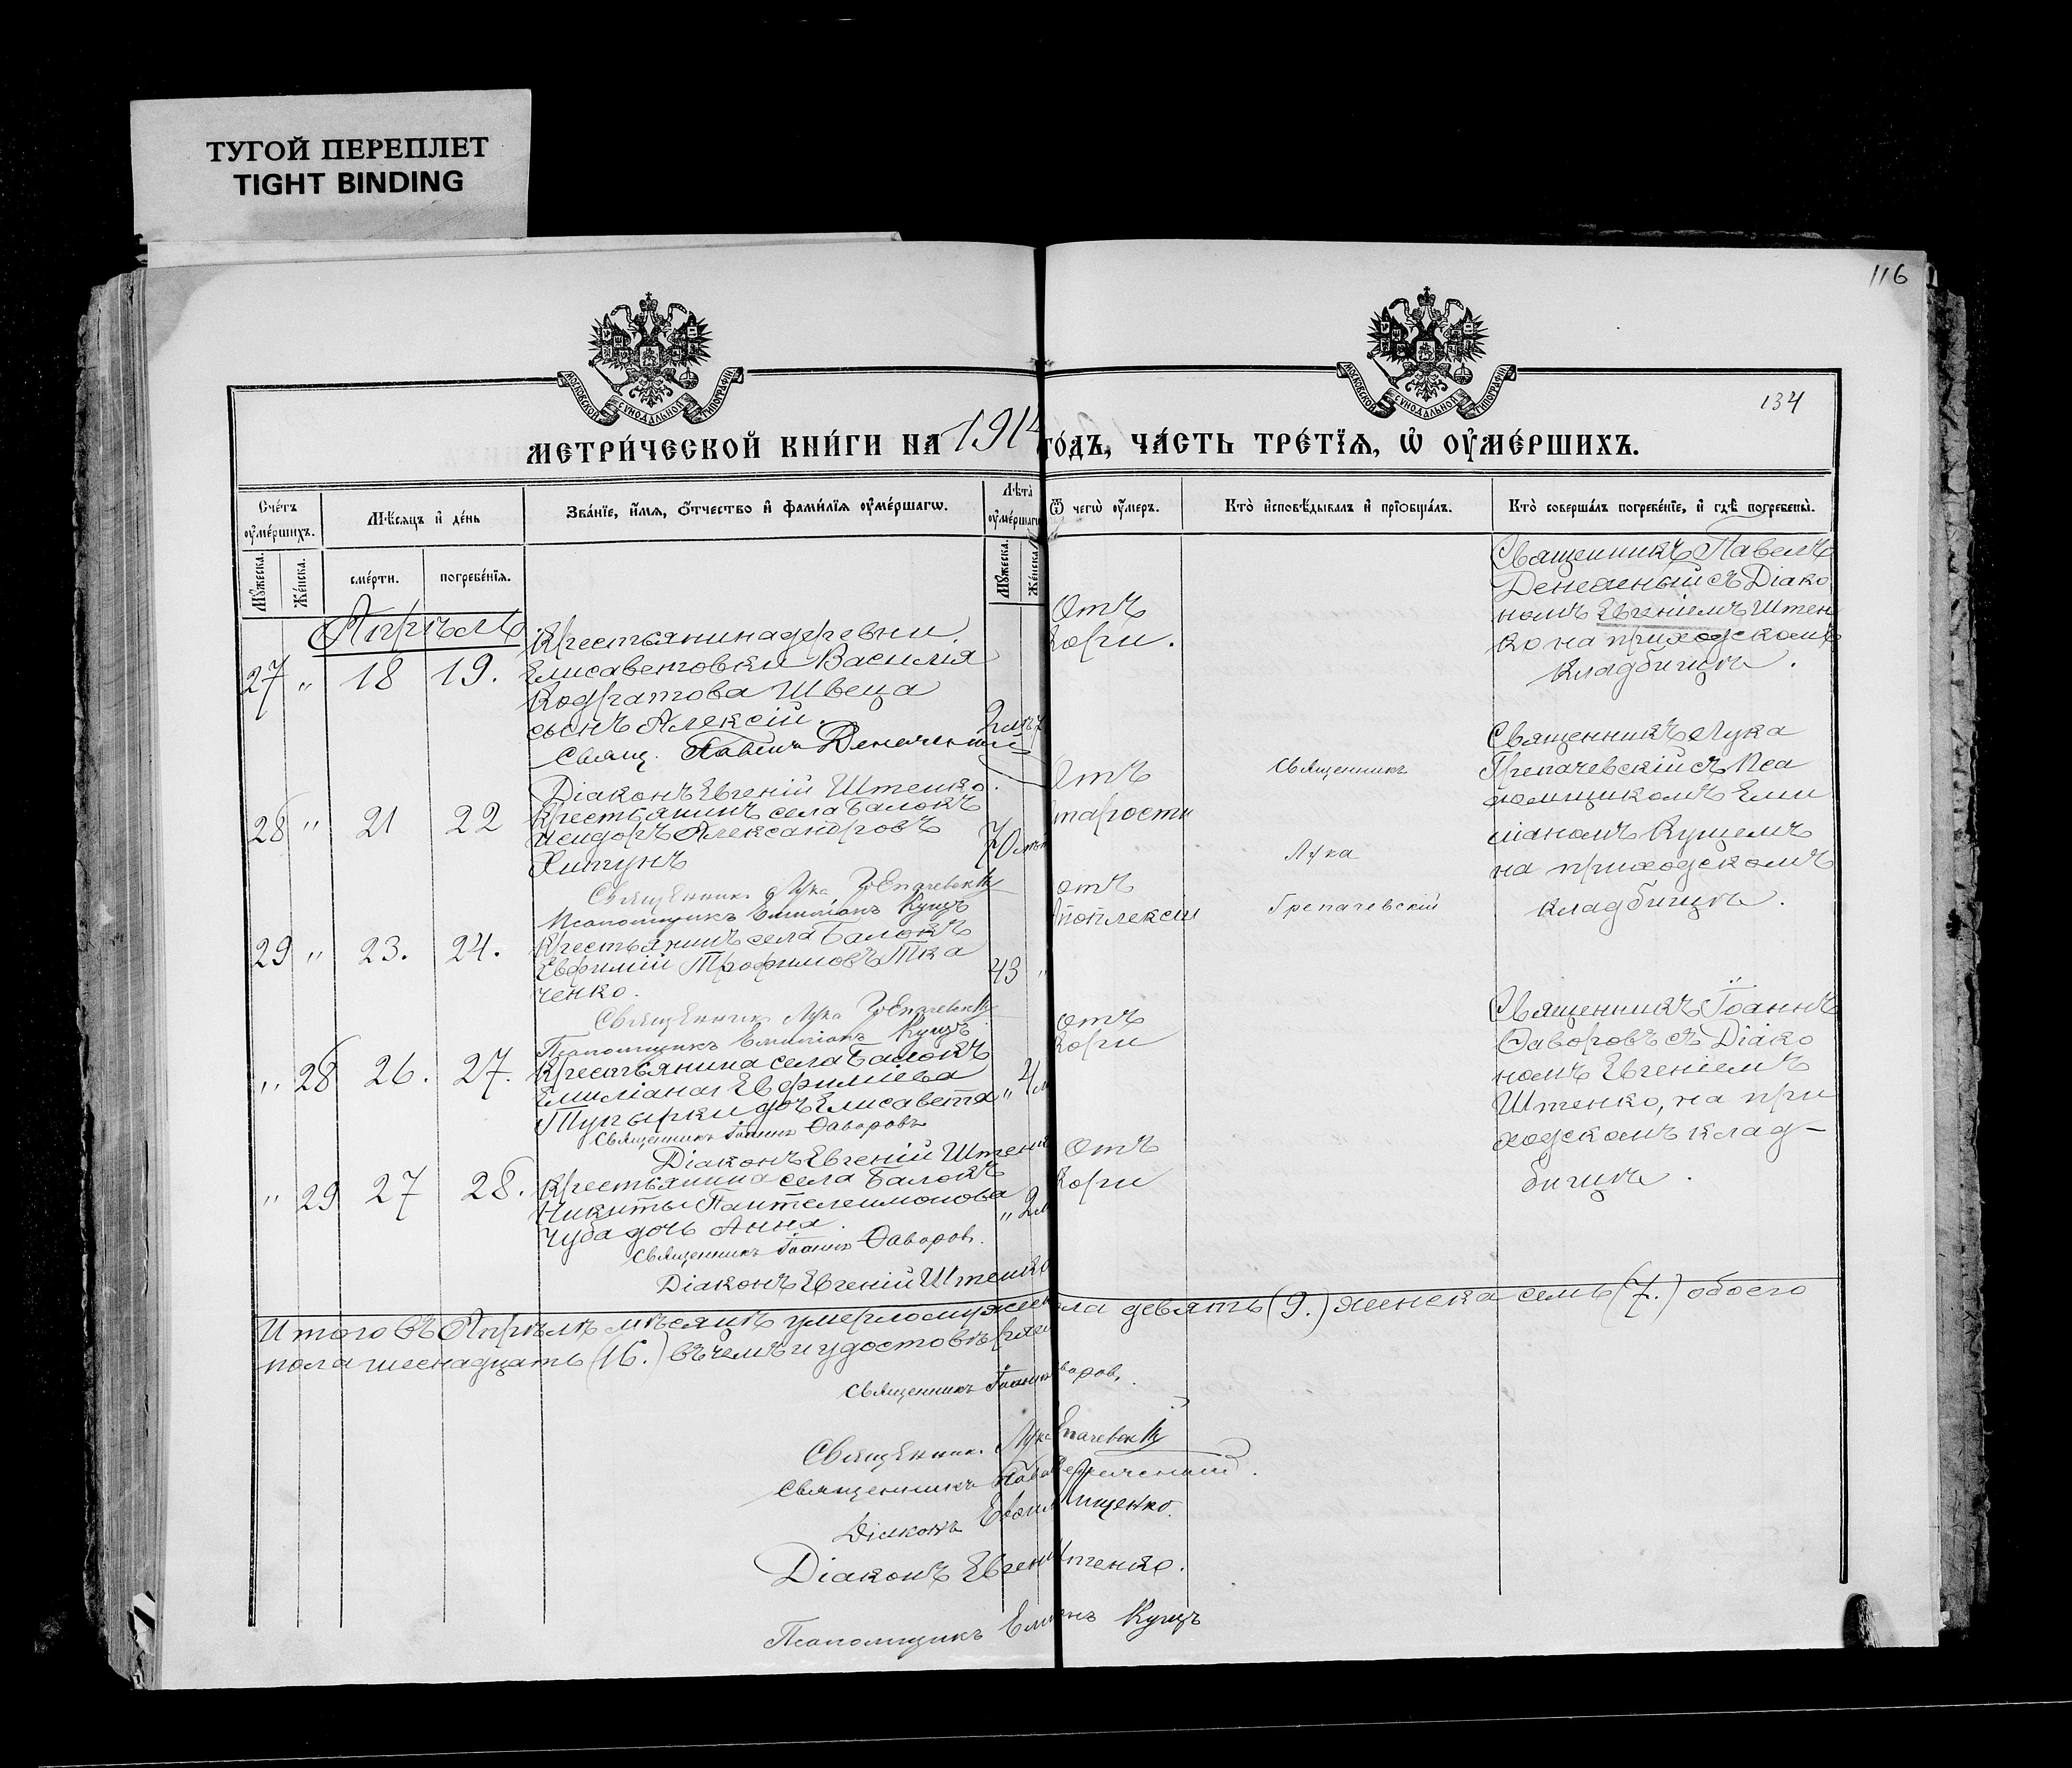 ТУГОЙ ПЕРЕПЛЕТ
TIGHT BINDING
116
134
МОСКОВСКОЙ СУНОДАЛЬНОЙ ТИПОГРАФІИ
МОСКОВСКОЙ СУНОДАЛЬНОЙ ТИПОГРАФІИ
МЕТРИ́ЧЕСКОЙ КНИ́ГИ НА 1914 ГО́ДЪ, ЧА́СТЬ ТРЕ́ТЇѦ, Ѡ҆ ОУ҆МЕ́РШИХЪ.
Сче́тъ оу҆ме́ршихъ.
Мѣ́сяцъ и҆ де́нь
Зва́нїе, и҆́мя, ѻ҆́тчество и҆ фами́лїя оу҆ме́ршагѡ.
Лѣ́та оу҆ме́ршагѡ
Ѿ чегѡ̀ оу҆́меръ.
Кто̀ и҆сповѣ́дывалъ и҆ прїѻбща́лъ.
Кто̀ соверша́лъ погребе́нїе, и҆ гдѣ̀ погребены̀.
Мꙋ́жеска.
Же́нска.
сме́рти.
погребе́нїя.
Мꙋ́жеска.
Же́нска.
Апрѣль
27 " 18 19.
Крестьянина деревни
Елисаветовки Василія
Кодратова Швеца
сынъ Алексій.
2 лѣт
Свящ. Павелъ Денежный
Діаконъ Евгеній Штенко.
Отъ
Кори.
Священникъ Павелъ
Денежный съ Діако
номъ Евгеніемъ Штен
ко на приходскомъ
кладбищѣ.
28 " 21 22
Крестьянинъ села Балокъ
Исидоръ Александровъ
Хитунъ
70 лѣт
Священник Лука Грепачевскій
Псаломщикъ Емиліанъ Кущъ
Отъ
старости
Священникъ
Лука
Грепачевскій
Священникъ Лука
Грепачевскій съ Пса
ломщикомъ Еми
ліаномъ Кущемъ
на приходскомъ
кладбищѣ.
29 " 23. 24.
Крестьянинъ села Балокъ
Евфимій Трофимовъ Тка
ченко.
43 "
Священникъ Лука Грепачевскій
Псаломщикъ Емиліанъ Кущъ
отъ
Апоплексіи
" 28 26. 27.
Крестьянина села Балокъ
Емиліана Евфиміева
дочь Елисавета
" 4 л
Священникъ Іоаннъ Ѳаворовъ
Діаконъ Евгеній Штенко
отъ
Кори
Священникъ Іоаннъ
Ѳаворовъ съ Діако
номъ Евгеніемъ
Штенко, на при
ходскомъ клад-
бищѣ.
" 29 27 28.
Крестьянина села Балокъ
Никиты Пантелеимонова
Чуба дочь Анна.
" 2 л
Священникъ Іоаннъ Ѳаворов.
Діаконъ Евгеній Штенко
Отъ
Кори
Итого въ Апрѣлѣ мѣсяцѣ умерло мужеск пола девять (9.) женска семь (7.) обоего
пола шеснадцать (16.) въ чемъ и удостовѣряем
Священникъ Іоаннъ Ѳаворов,
Священник. Лука Грепачевскій
Священникъ Павелъ Денежный.
Діаконъ Ищенко.
Діаконъ Евгеній Штенко.
Псаломщикъ Емиліанъ Кущъ